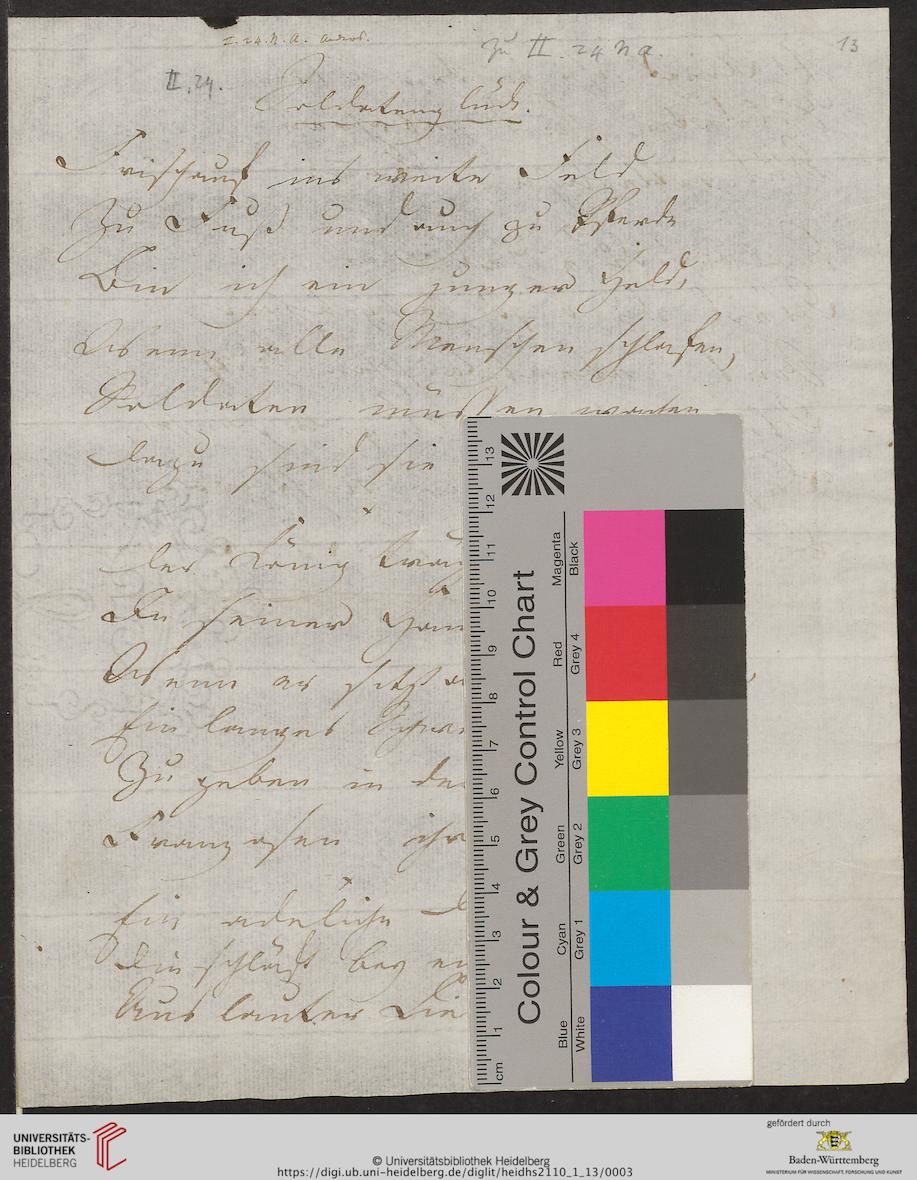 II. 24. N. a.
zu II. 24 N a.
13
II. 24.
Soldatenglück.
Frischauf ins weite Feld
Zu Fuß und auch zu Pferde
Bin ich ein junger Held,
Wenn alle Menschen schlafen,
Soldaten müssen wachen
dazu sind sie
der König
In seiner
Wenn er sitzt
Ein langes
Zu geben in de
Franzosen ihr
Ein adeliche
Die schläft bey
Aus lauter Lie
13
12
11
10
9
8
7
6
5
4
3
2
1
cm
Colour & Grey Control Chart
Magenta
Red
Yellow
Green
Cyan
Blue
Black
Grey 4
Grey 3
Grey 2
Grey 1
White
UNIVERSITÄTS-
BIBLIOTHEK
HEIDELBERG
© Universitätsbibliothek Heidelberg
https://digi.ub.uni-heidelberg.de/diglit/heidhs2110_1_13/0003
gefördert durch
Baden-Württemberg
MINISTERIUM FÜR WISSENSCHAFT, FORSCHUNG UND KUNST